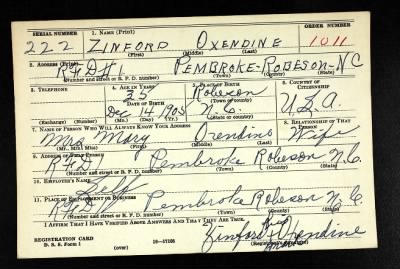 SERIAL NUMBER 1. NAME (Print) ORDER NUMBER
222 ZINFORD OXENDINE 1011
(First) (Middle) (Last)
2. ADDRESS (Print)
RFD#1. PEMBROKE-ROBESON-NC
(Number and street or R. F. D. number) (Town) (County) (State)
3. TELEPHONE 4. AGE IN YEARS 5. PLACE OF BIRTH 6. COUNTRY OF CITIZENSHIP
35 Robeson
DATE OF BIRTH (Town or county)
Dec 14 1905 N.C. U.S.A.
(Mo.) (Day) (Yr.) (State or country)
7. NAME OF PERSON WHO WILL ALWAYS KNOW YOUR ADDRESS 8. RELATIONSHIP OF THAT PERSON
Mrs. Mary Oxendine Wife
(Mr., Mrs., Miss) (First) (Middle) (Last)
9. ADDRESS OF THAT PERSON
RFD1 Pembroke Robeson N.C.
(Number and street or R. F. D. number) (Town) (County) (State)
10. EMPLOYER'S NAME
Self
11. PLACE OF EMPLOYMENT OR BUSINESS
RFD1 Pembroke Robeson N.C.
(Number and street or R. F. D. number) (Town) (County) (State)
I AFFIRM THAT I HAVE VERIFIED ABOVE ANSWERS AND THAT THEY ARE TRUE.
REGISTRATION CARD
D. S. S. Form 1 (over) 16-17105 Zinford Oxendine